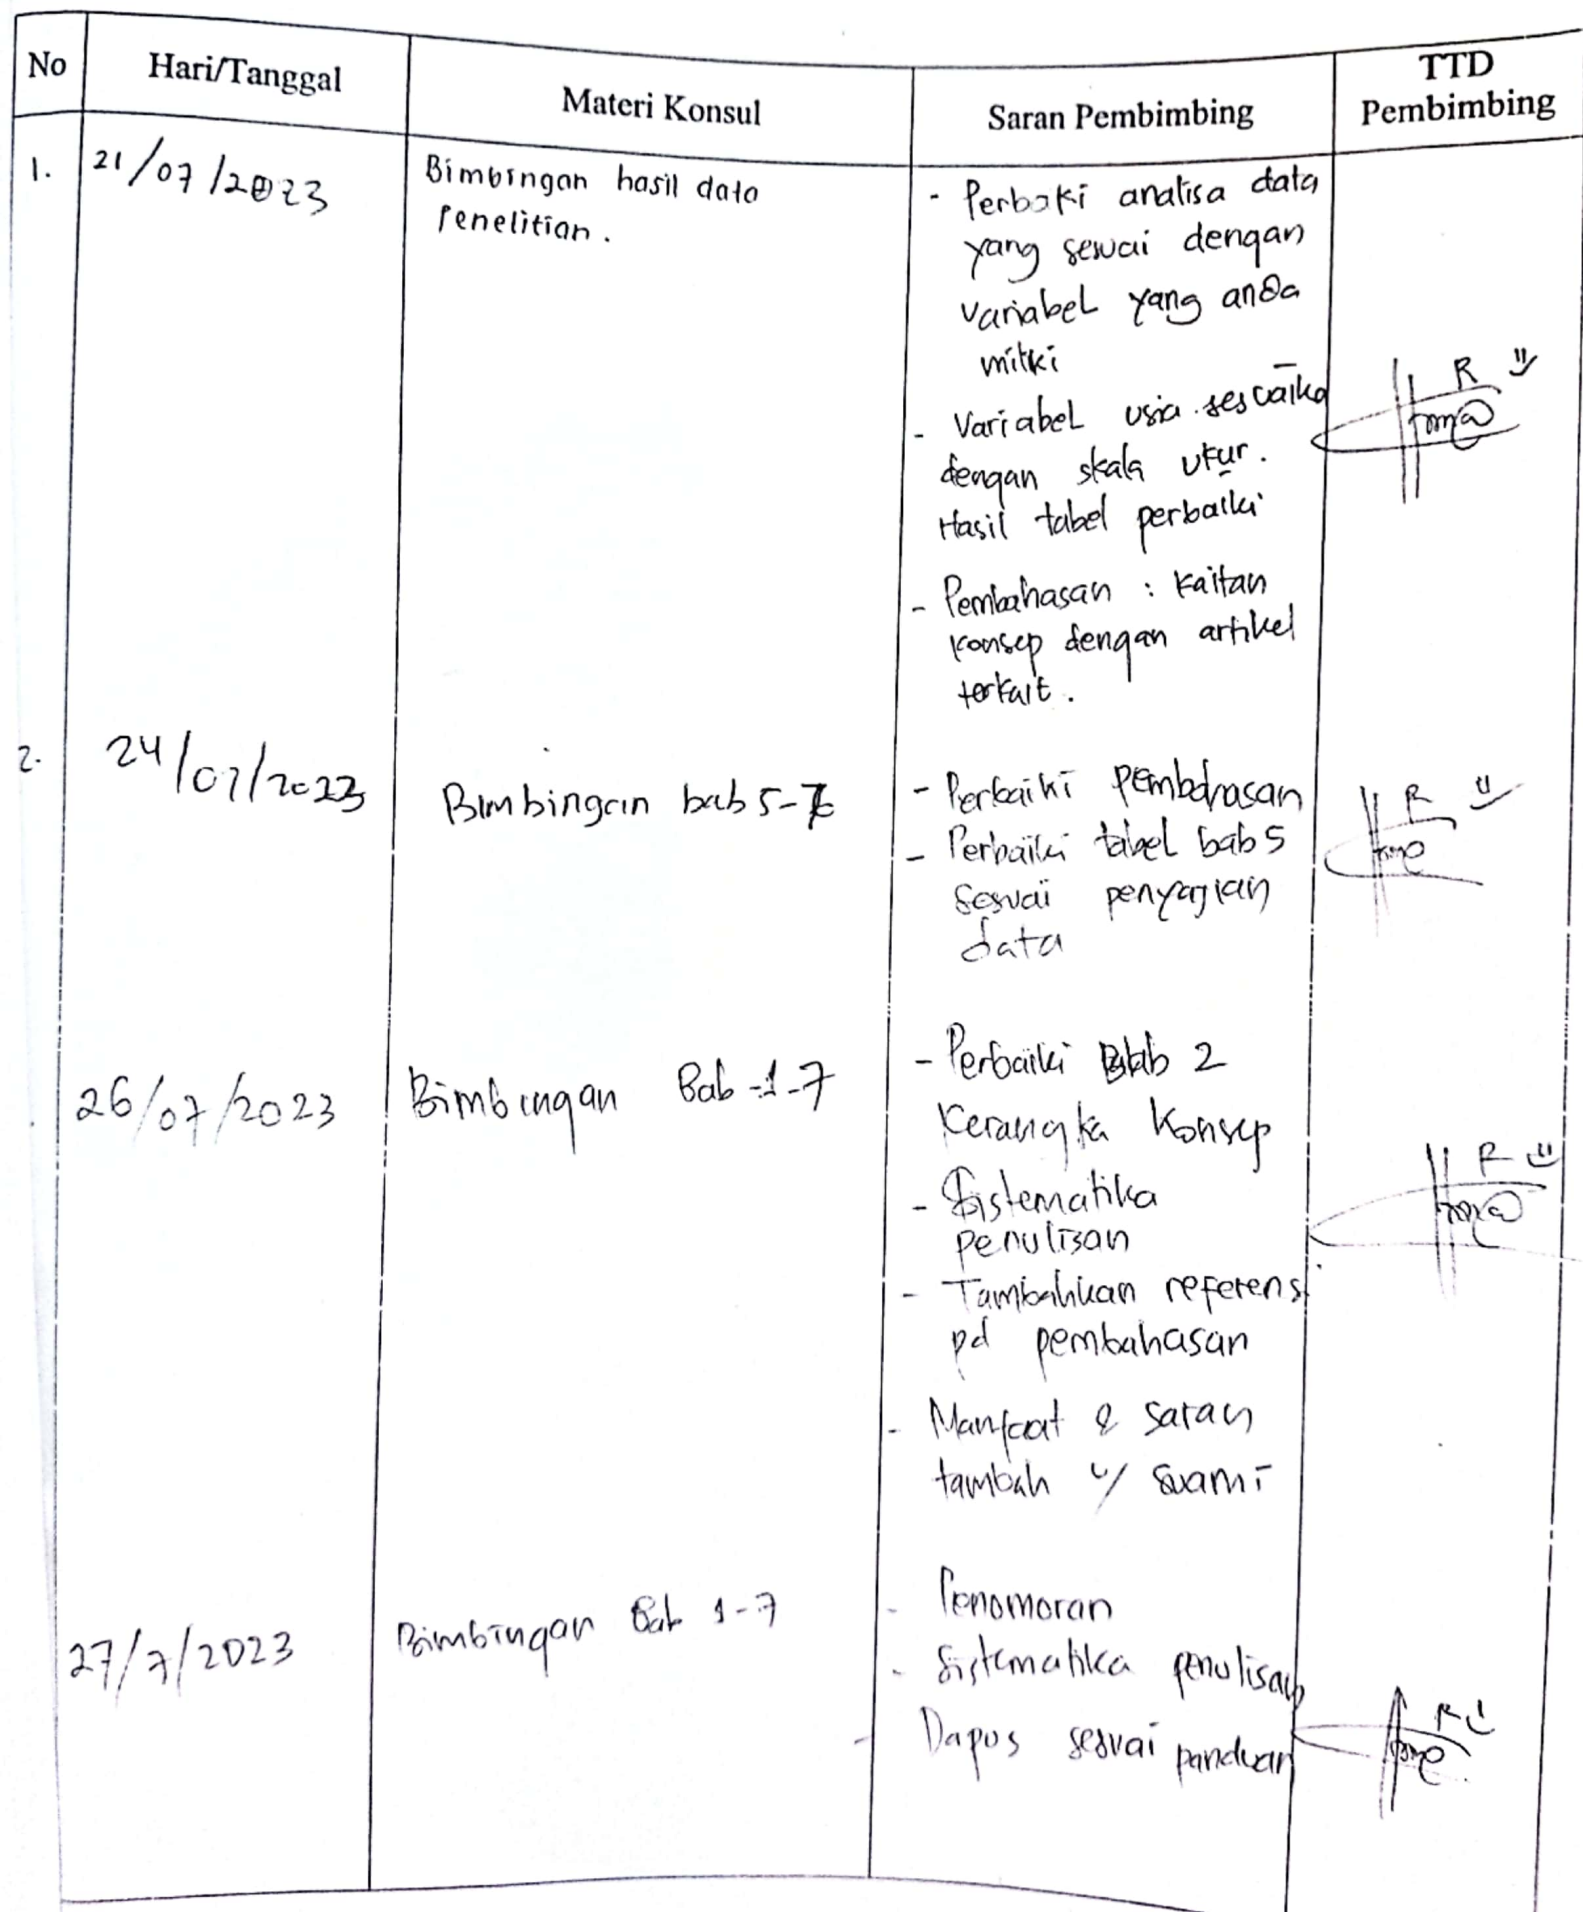 No
Hari/Tanggal
Materi Konsul
Saran Pembimbing
TTD
Pembimbing
1.
21/07/2023
Bimbingan hasil data
Penelitian.
- Perbaki analisa data
yang sesuai dengan
variabel yang anda
milki
- Variabel usia sesuaika
dengan skala ukur.
Hasil tabel perbaiki
- Pembahasan : Kaitan
konsep dengan artikel
terkait.
2.
24/07/2023
Bimbingan bab 5-7
- Perbaiki pembahasan
- Perbaiki tabel bab 5
sesuai penyajian
data
26/07/2023
Bimbingan Bab 1-7
- Perbaiki Bab 2
Kerangka Konsep
- Sistematika
penulisan
- Tambahkan referensi
pd pembahasan
- Manfaat & saran
tambah u/ suami
27/7/2023
Bimbingan Bab 1-7
- Penomoran
- Sistematika penulisan
- Dapus sesuai panduan